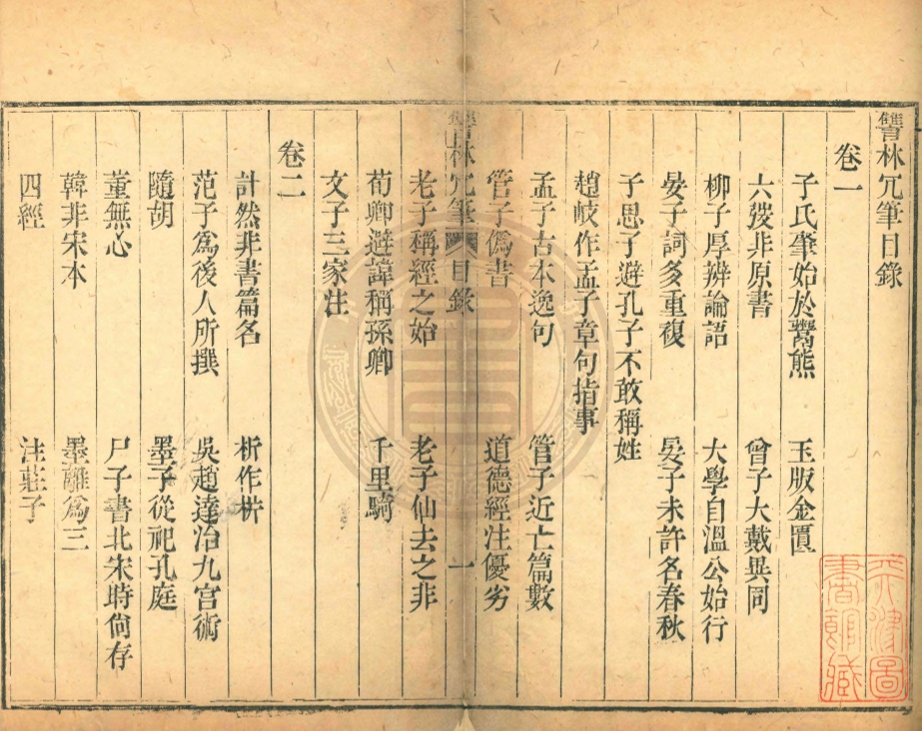 讐林冗筆目錄
卷一
子氏肇始於鬻熊 玉版金匱
六弢非原書 曾子大戴異同
柳子厚辨論語 大學自溫公始行
晏子詞多重複 晏子未許名春秋
子思子避孔子不敢稱姓
趙岐作孟子章句指事
孟子古本逸句 管子近亡篇數
管子僞書 道德經注優劣
讐林冗筆 目錄 一
老子稱經之始 老子仙去之非
荀卿避諱稱孫卿 千里騎
文子三家注
卷二
計然非書篇名 枅作栟
范子爲後人所撰 吳趙達治九宮術
隨胡 墨子從祀孔庭
董無心 尸子書北宋時尙存
韓非宋本 墨離爲三
四經 注莊子
天津圖書館藏